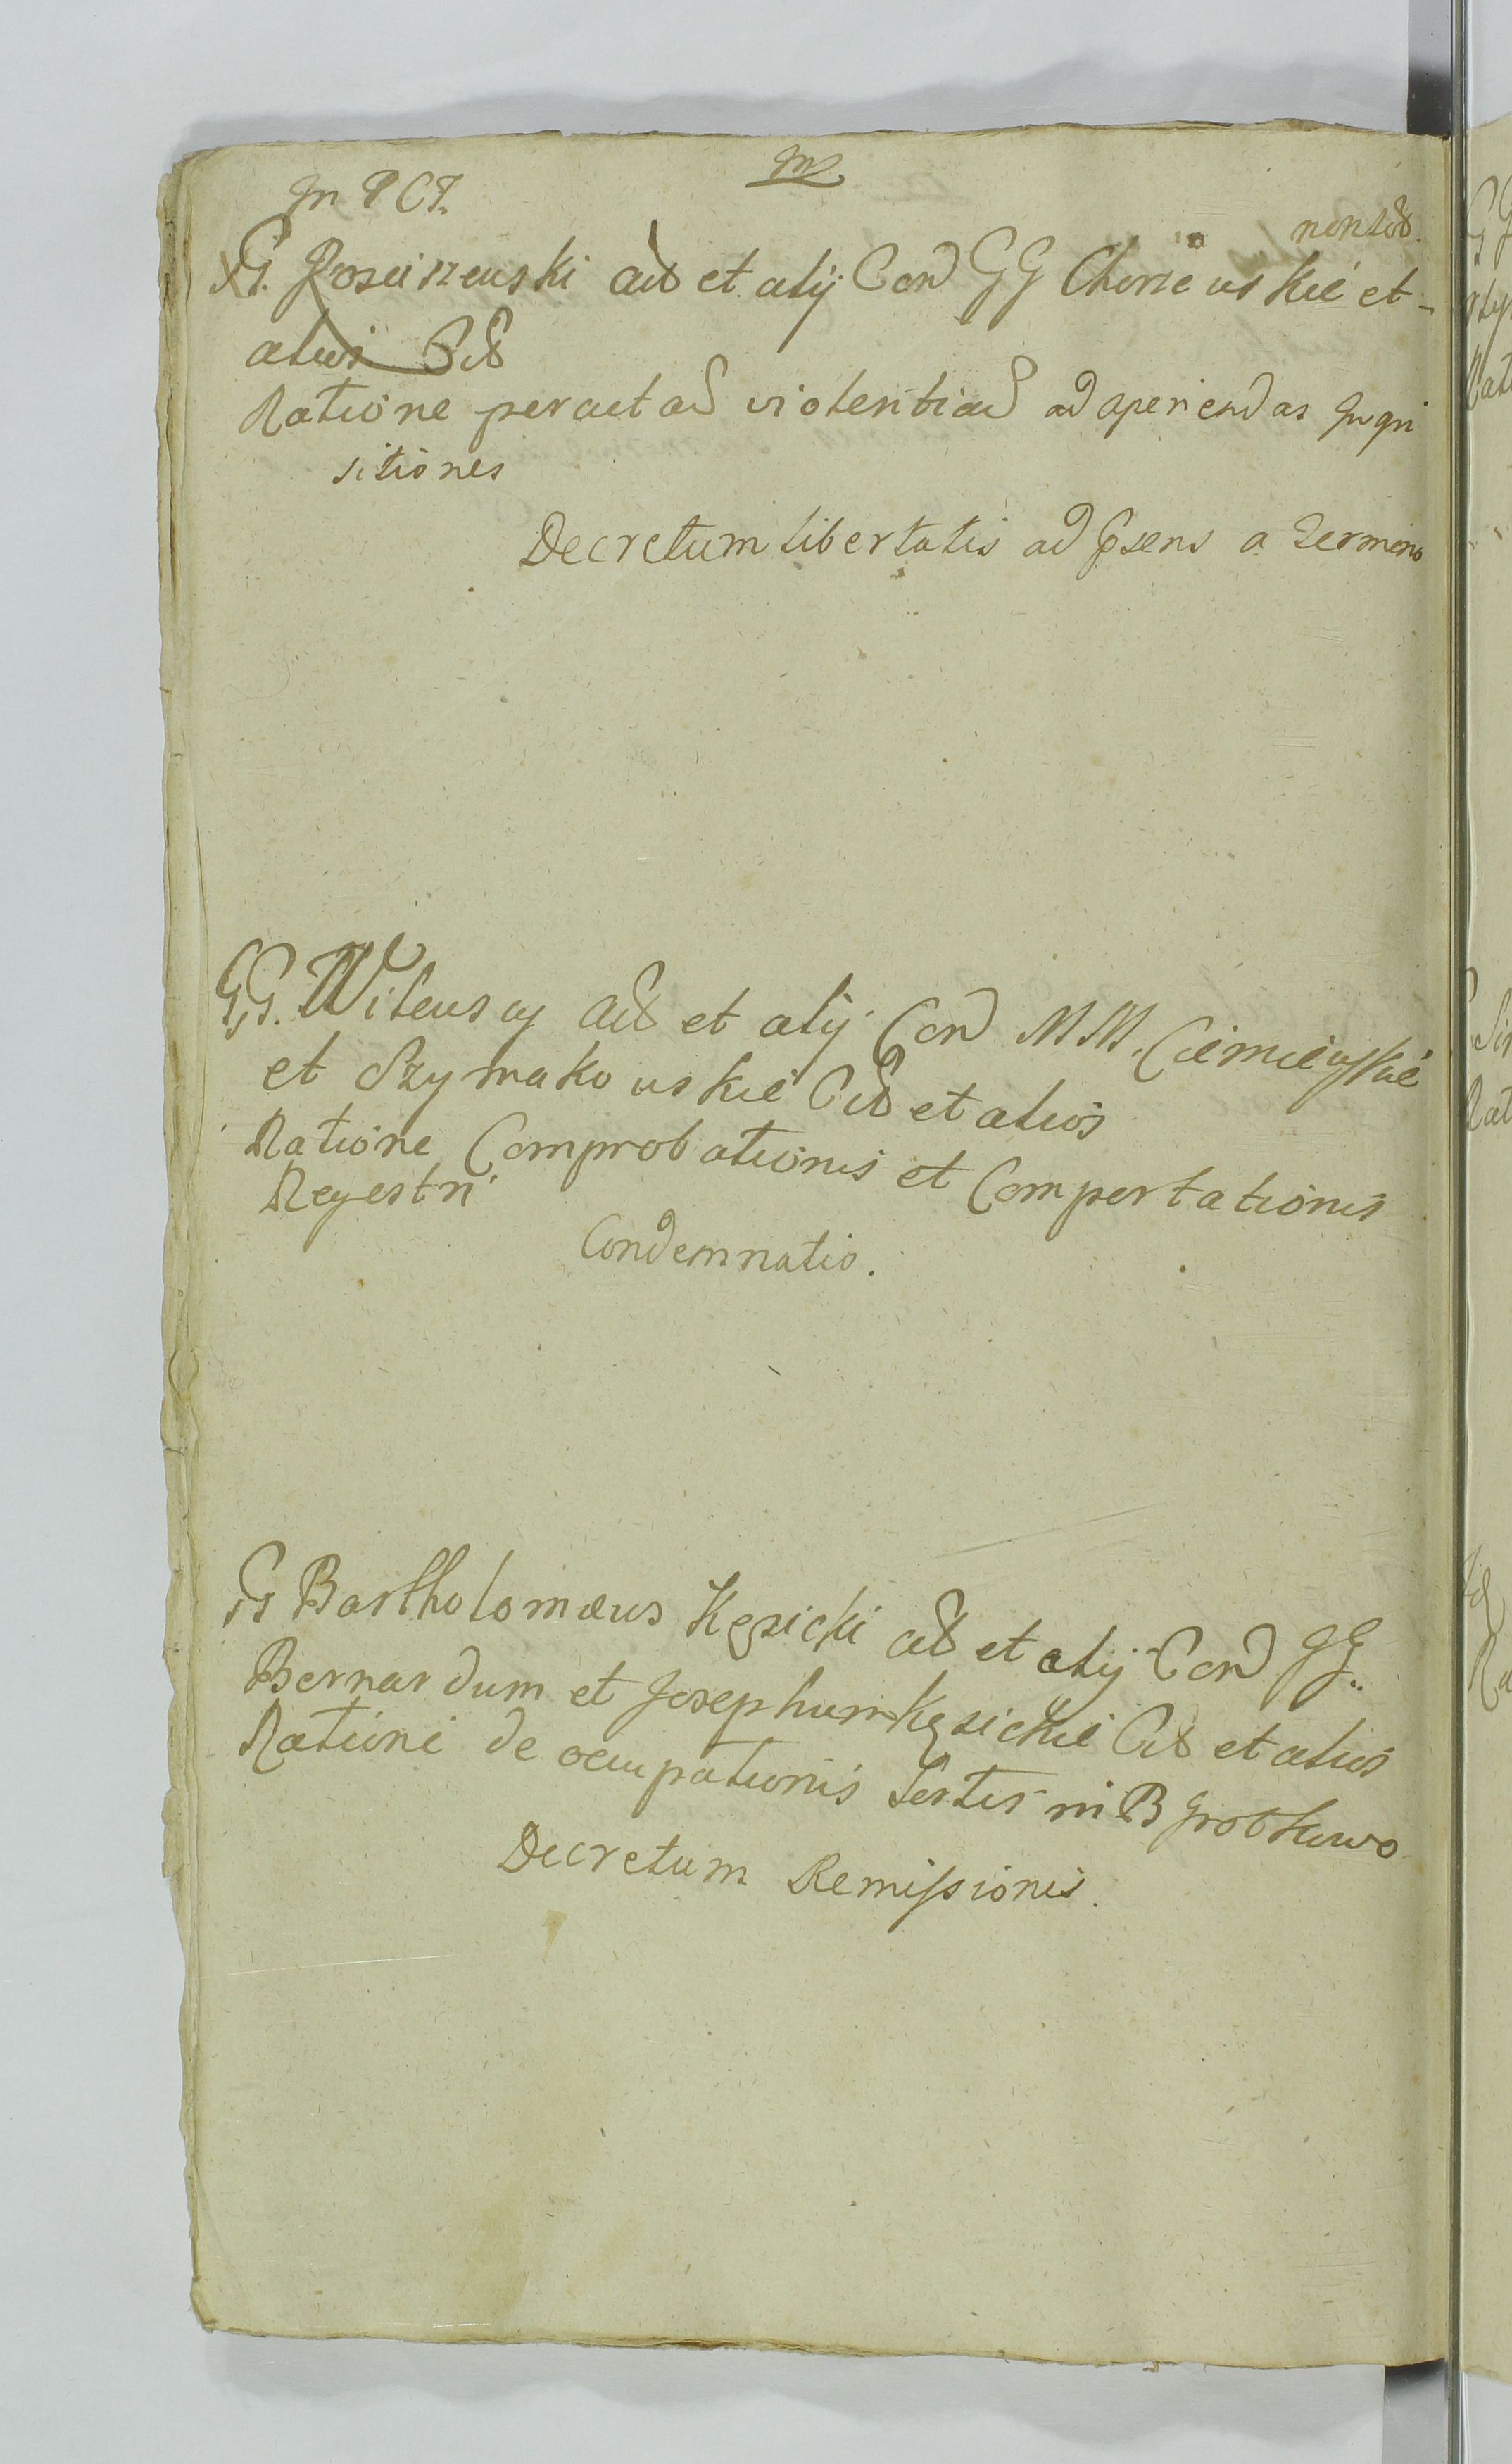 In P C T.
nontus.
G. Rosciszewski act et alij Con GG Chorzewskie et
alios Cit
Ratione peractad violentiad ad aperiendas Inqui
sitiones
Decretum libertatis ad psens a Termino
GG. Wilewscy act et alij Con MM. Ciemniewskie
et Szymakowskie Cit et alios
Ratione Comprobationis et Comportationis
Regestri
Condemnatio.
G Bartholomæus Kęsicki act et alij Con GG.
Bernardum et Josephum Kęsickie Cit et alios
Rationi de ocupationis Sortis in B Grotkowo
Decretum Remissionis.